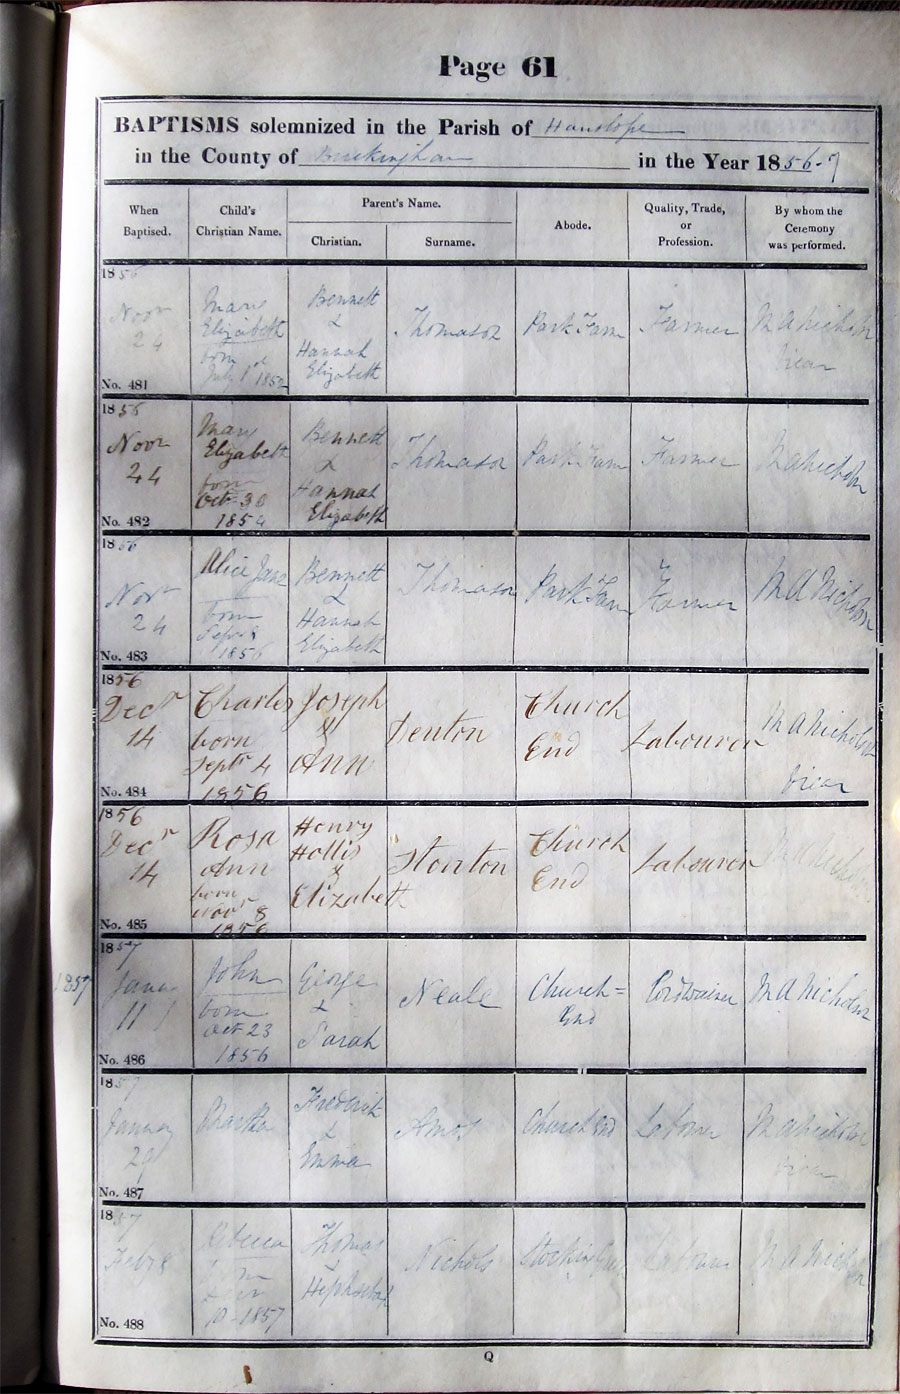 Page 61
BAPTISMS solemnized in the Parish of Hanslope
in the County of Buckingham in the Year 1856-7
When Baptised.
Child's Christian Name.
Parent's Name.
Christian.
Surname.
Abode.
Quality, Trade, or Profession.
By whom the Ceremony was performed.
1856
Novr
24
No. 481
Mary
Elizabeth
born
July 1st
Bennett
&
Hannah
Elizabeth
Thomason
Park Farm
Farmer
M A Nicholson
Vicar
1856
Novr
24
No. 482
Mary
Elizabeth
born
Oct 30
1854
Bennett
&
Hannah
Elizabeth
Thomason
Park Farm
Farmer
M A Nicholson
1856
Novr
24
No. 483
Alice Jane
born
1856
Bennett
&
Hannah
Elizabeth
Thomason
Park Farm
Farmer
M A Nicholson
1856
Decr
14
No. 484
Charles
born
Septr 4
1856
Joseph
&
Ann
Denton
Church
End
Labourer
M A Nicholson
Vicar
1856
Decr
14
No. 485
Rosa
Ann
born
Novr 8
1856
Henry
Hollis
&
Elizabeth
Stonton
Church
End
Labourer
M A Nicholson
1857
1857
11
No. 486
John
born
Oct 23
1856
George
&
Sarah
Neale
Church=
End
Cordwainer
M A Nicholson
1857
January
29
No. 487
Martha
Frederick
&
Emma
Amos
Church End
Labourer
M A Nicholson
Vicar
1857
Feby 8
No. 488
Rebecca
born
10 1857
Thomas
&
Hephzibah
Nichols
Labourer
M A Nicholson
Q